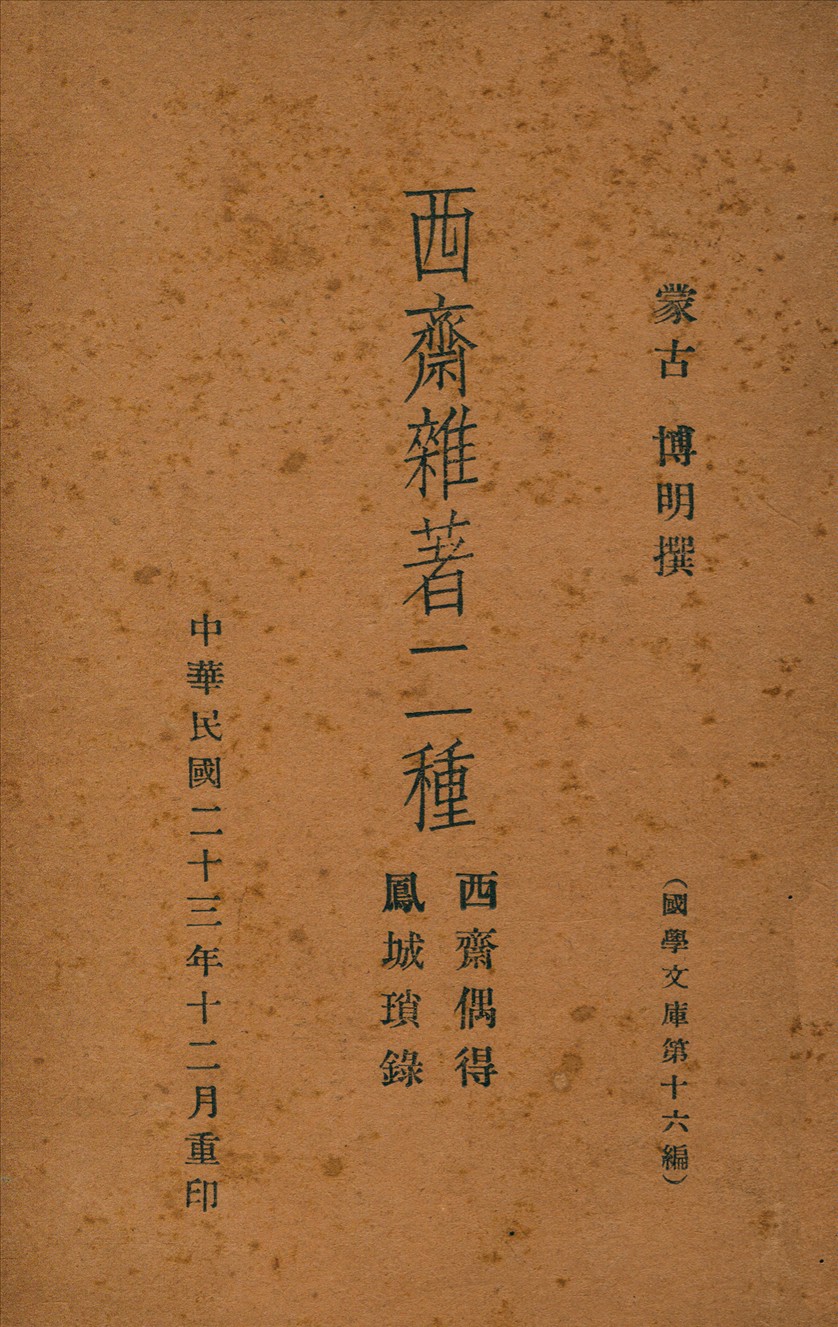 蒙古 博明撰
(國學文庫第十六編)
西齋雜著二種
西齋偶得
鳳城瑣錄
中華民國二十三年十二月重印